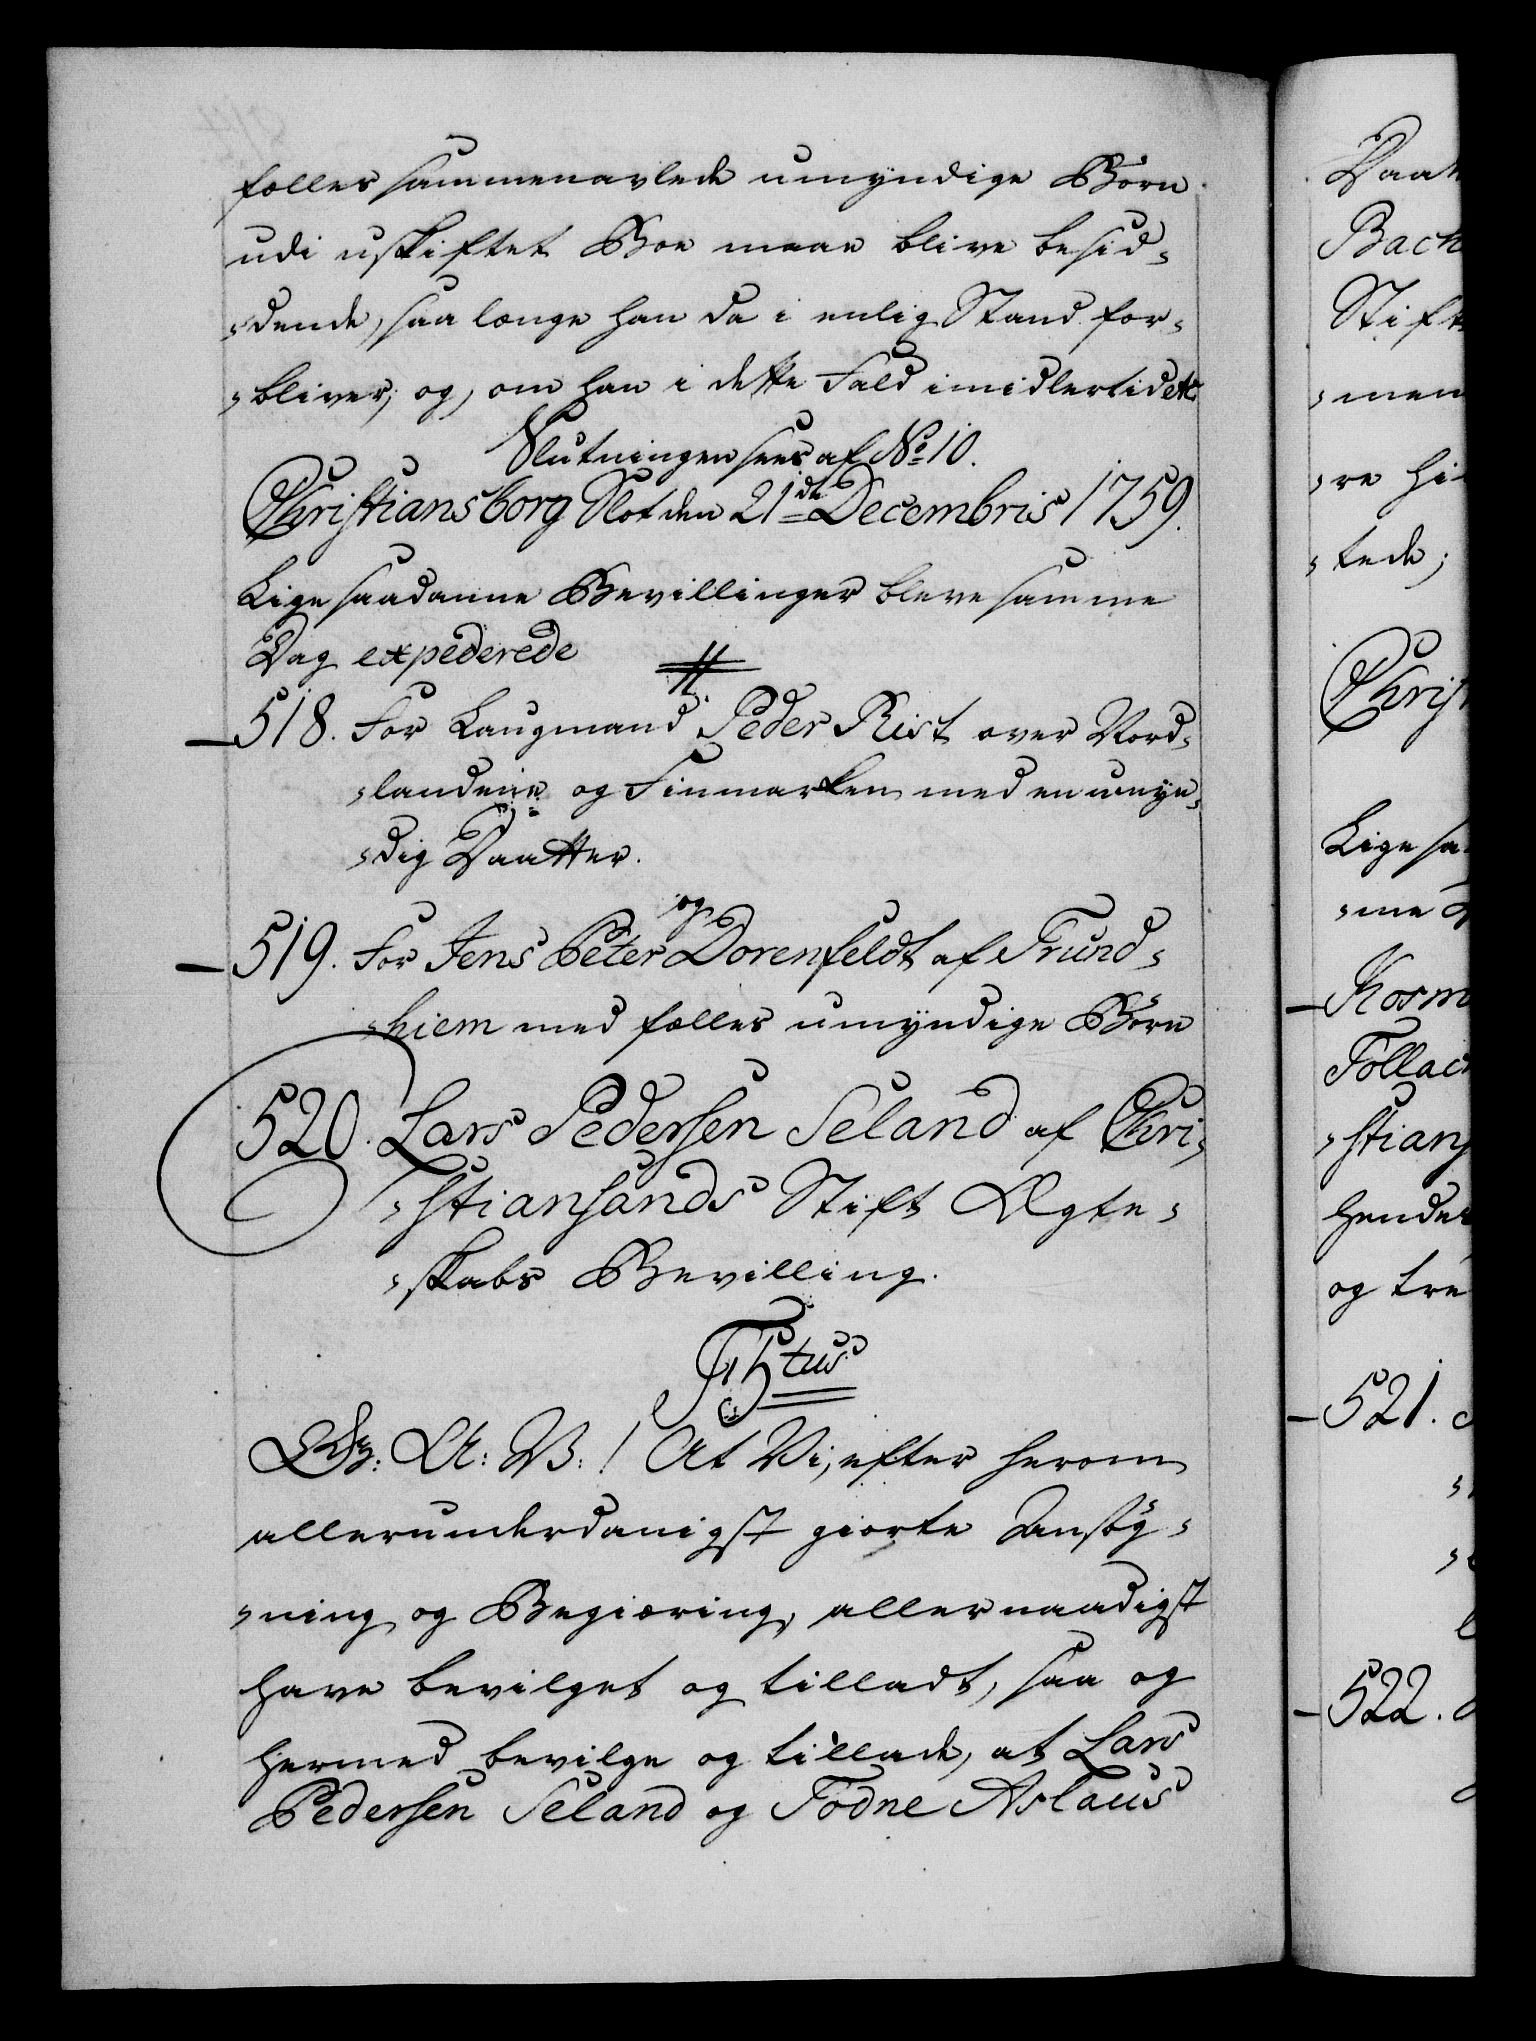 fælles sammenavlede umyndige Børn
udi uskiftet Boe maae blive besid-
-dende, saa længe han da i enlig Stand for-
-bliver; og, om han i dette Fald imidlertid etc
Slutningen sees af No 10.
Christiansborg Slot den 21de Decembris 1759.
Lige saadanne Bevillinger bleve samme
Dag expederede
518. For Laugmand Peder Rist over Nord-
-landene og Finmarken med en umyn-
-dig Daatter.
og
519. For Jens Peter Dorenfeldt af Trund-
-hiem med fælles umyndige Børn
520. Lars Pedersen Seland af Chri-
-stiansands Stift Ægte-
-skabs Bevilling.
F5tus
G: A: V: ! At Vi, efter herom
allerunderdanigst giorte Ansøg-
-ning og Begiæring, allernaadigst
have bevilget og tilladt, saa og
hermed bevilge og tillade, at Lars
Pedersen Seland og Todne Aslaus
Daat
Bach
Stift
-men
-re hi
-tede;
Christ
Lige sa
-me D
Kosm
Tollac
-stians
hender
og tre
521.
522.